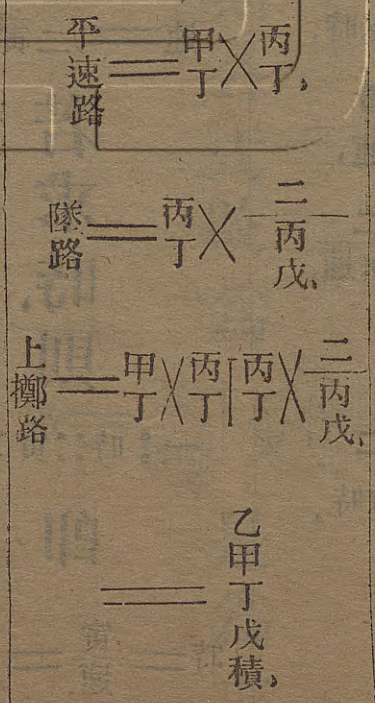 平速路＝甲丁×丙丁、
墜路＝丙丁×二/丙戊、
上擲路＝甲丁×丙丁丅丙丁×二/丙戊、
＝乙甲丁戊積、